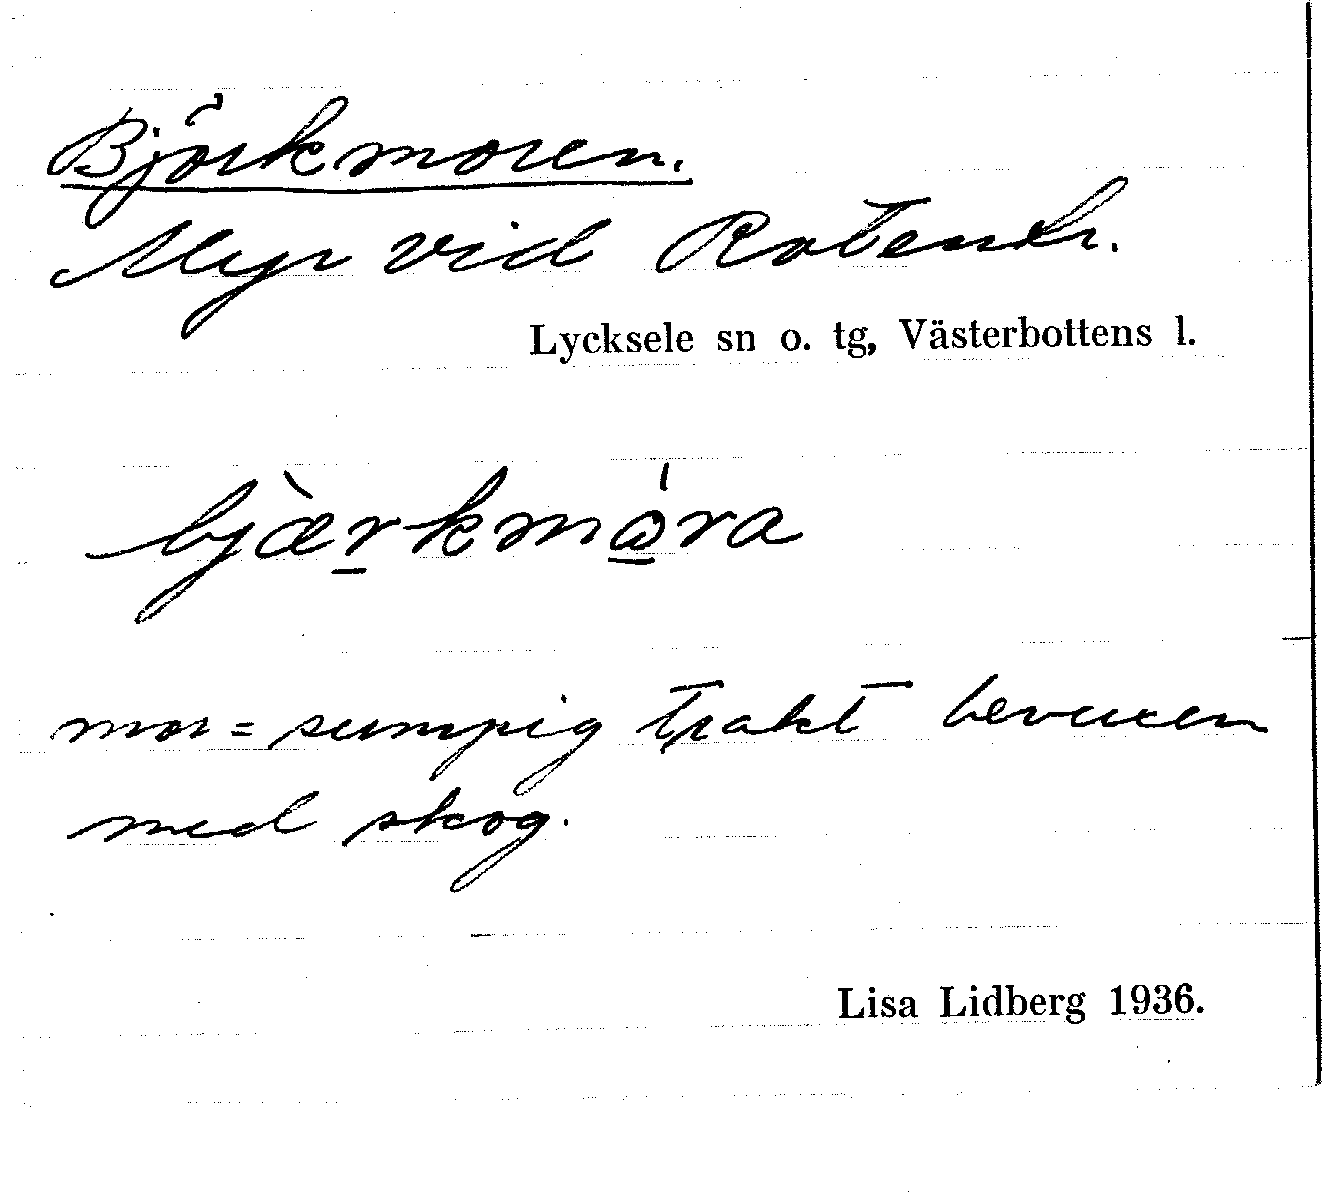 Björkmoren.
Myr vid Rotendr.
Lycksele sn o. tg, Västerbottens l.
bjæ̀r̲kmó̲ra
mor = sumpig trakt bevuxen
med skog.
Lisa Lidberg 1936.